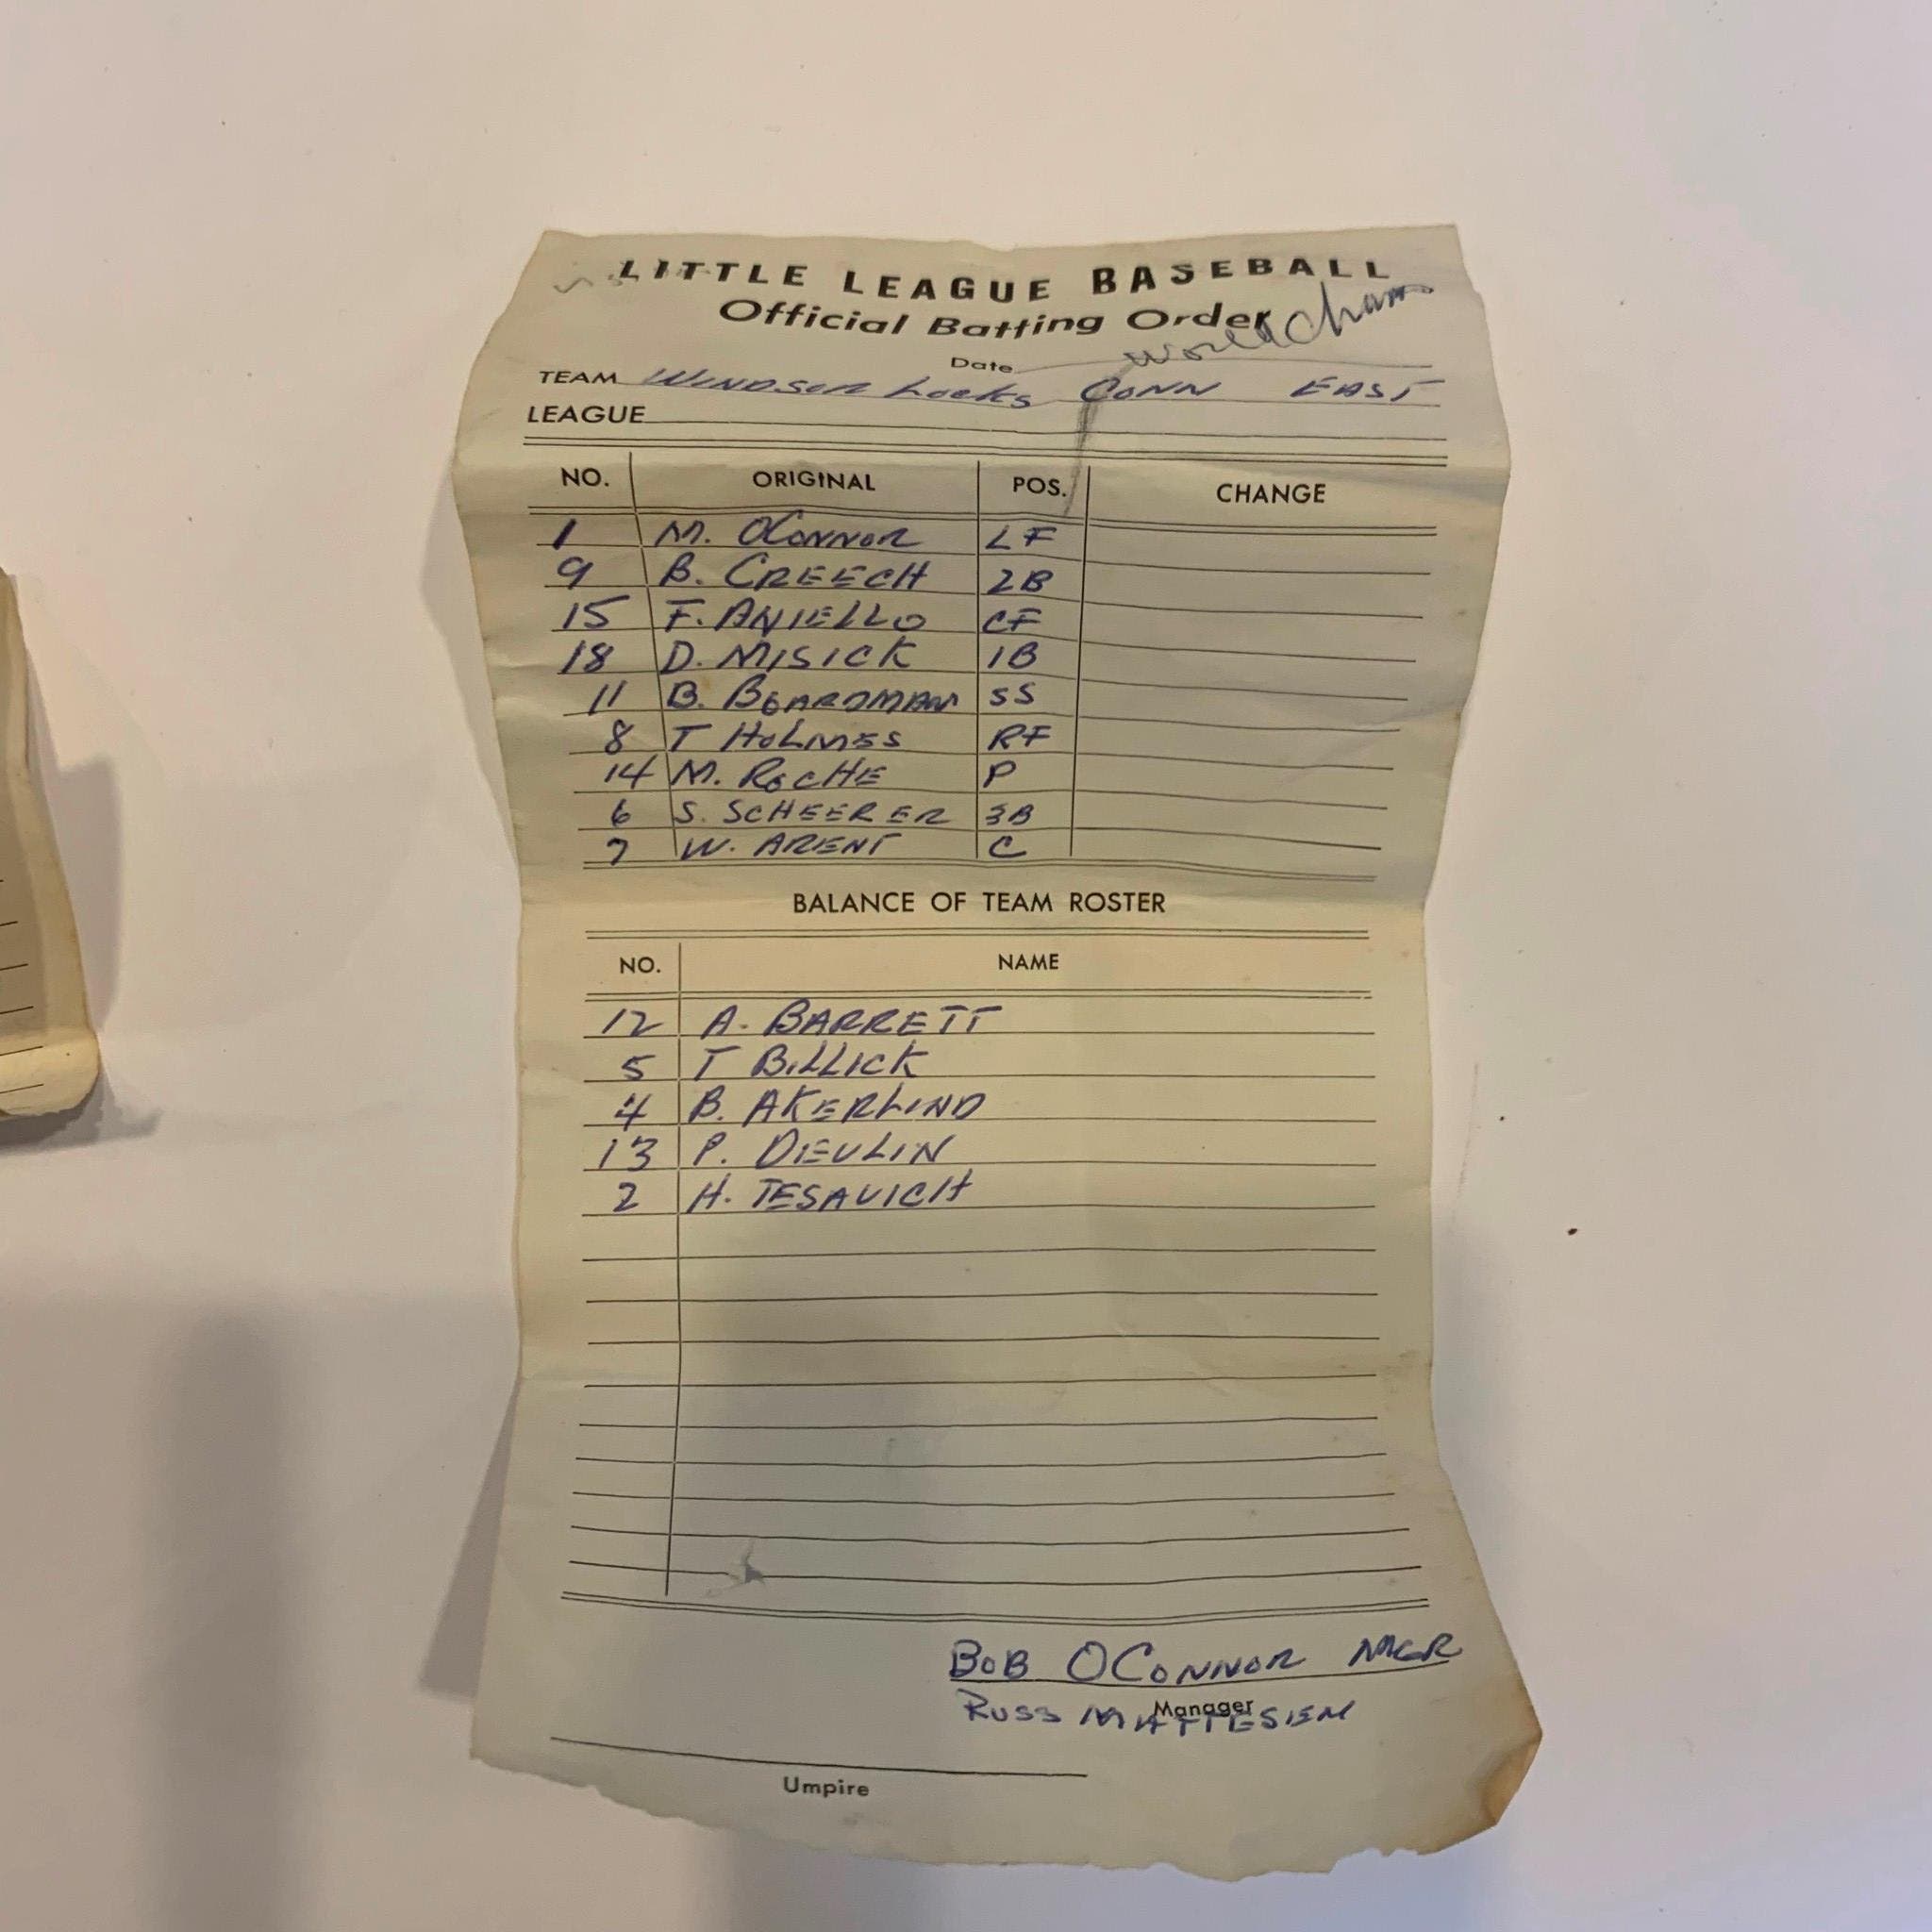 LITTLE LEAGUE BASEBALL
Official Batting Order
Date World Cham
TEAM Windsor Locks Conn EAST
LEAGUE
NO. ORIGINAL POS. CHANGE
1 M. OCONNOR LF
9 B. CREECH 2B
15 F. ANIELLO CF
18 D. MISICK 1B
11 B. BOARDMAN SS
8 T HOLMES RF
14 M. ROCHE P
6 S. SCHEERER 3B
7 W. ARENT C
BALANCE OF TEAM ROSTER
NO. NAME
12 A. BARRETT
5 T BILLICK
4 B. AKERLIND
13 P. DEVLIN
2 H. TESAVICH
BOB OCONNOR MGR
Manager
RUSS MATTESIEN
Umpire